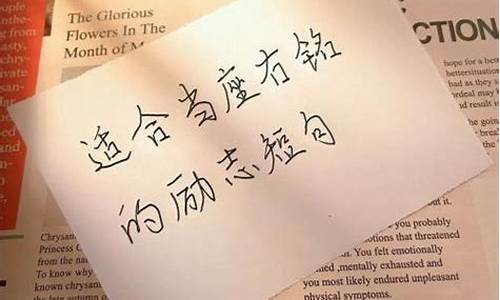 The Glorious
Flowers In The
Month of M
适合当座右铭
的励志短句
CTION
hope for a
had as they
ordeal may
d results
the
you probably
otions that threatened
. You felt emotionally
,mentally exhausted and
you most likely endured unpleasant
physical symptoms.
Chrysan
Princess
from the
To know why
known chrysan